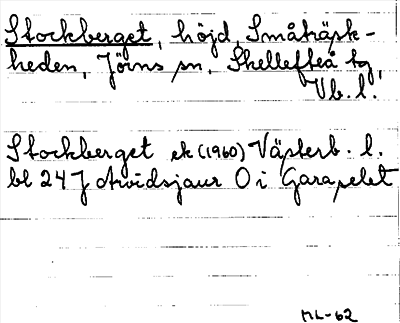 Stockberget, höjd, Småträsk-
heden, Jörns sn, Skellefteå tg,
Vb. l.
Stockberget ek (1960) Västerb. l.
bl 24 J Arvidsjaur O i Garapelet
ML-62